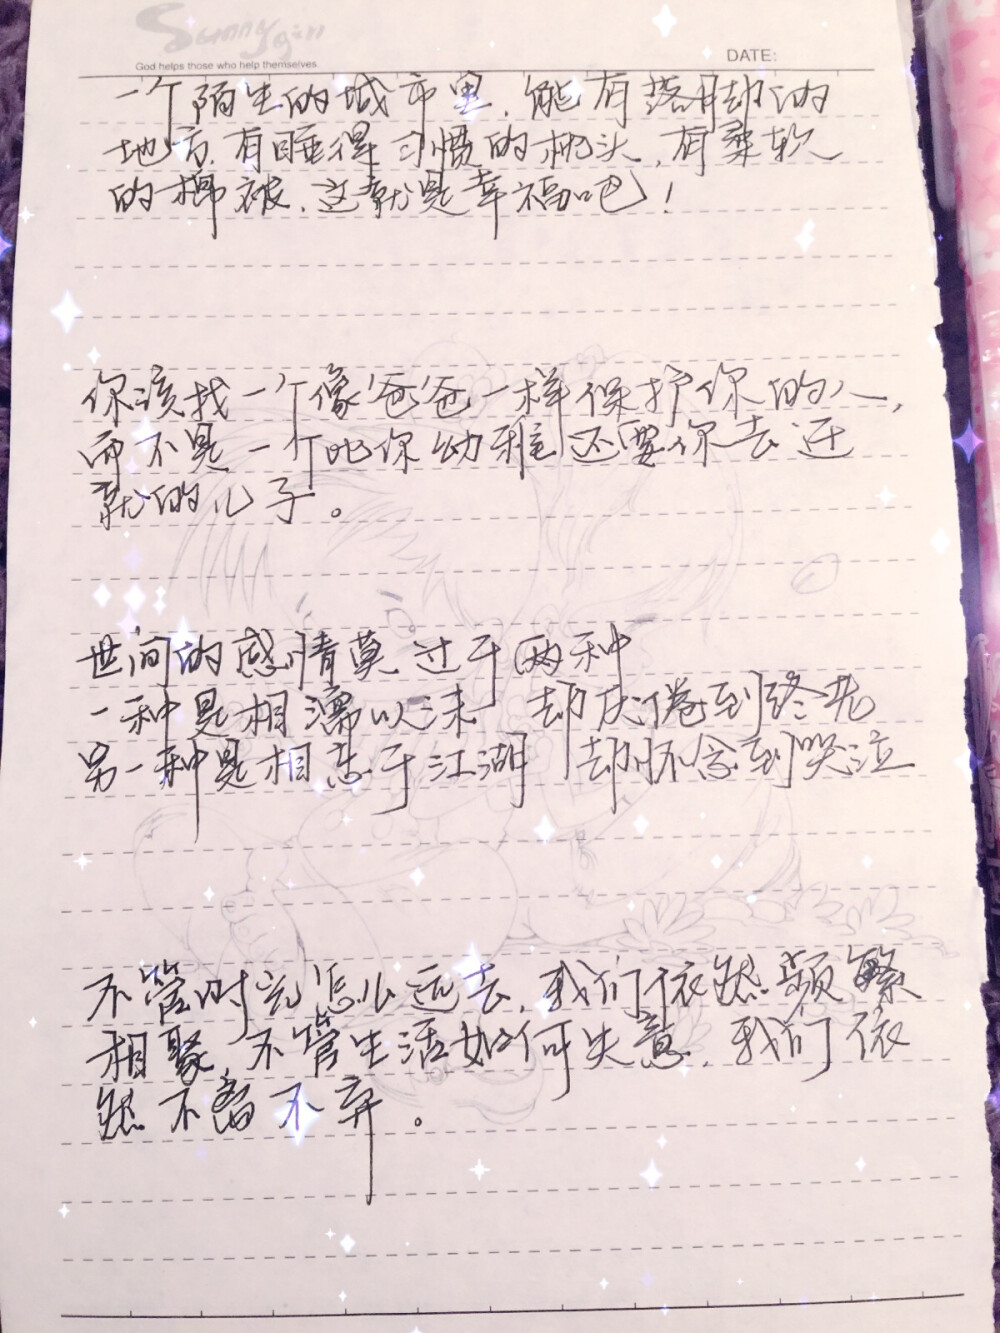 Sunny girl
God helps those who help themselves.
DATE:
一个陌生的城市里，能有落脚的
地方，有睡得习惯的枕头，有柔软
的棉被，这就是幸福吧！
你该找一个像爸爸一样保护你的人，
而不是一个比你幼稚还要你去迁
就的儿子。
世间的感情莫过于两种
一种是相濡以沫 却厌倦到终老
另一种是相忘于江湖 却怀念到哭泣
不管时光怎么远去，我们依然频繁
相聚，不管生活如何失意，我们依
然不离不弃。